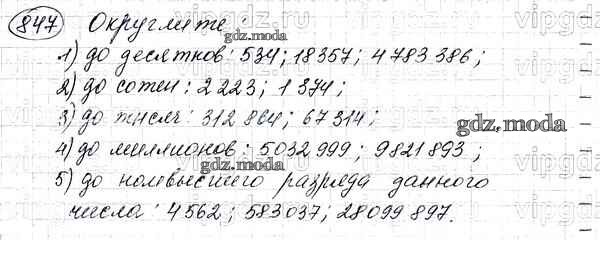 847 Округлите:
1) до десятков: 534; 18357; 4 783 386;
2) до сотен: 2 223; 1 374;
gdz.moda
3) до тысяч: 312 864; 67 314;
gdz.moda
4) до миллионов: 5032 999; 9821 893;
gdz.moda
5) до наивысшего разряда данного
числа: 4 562; 583 037; 28 099 897.